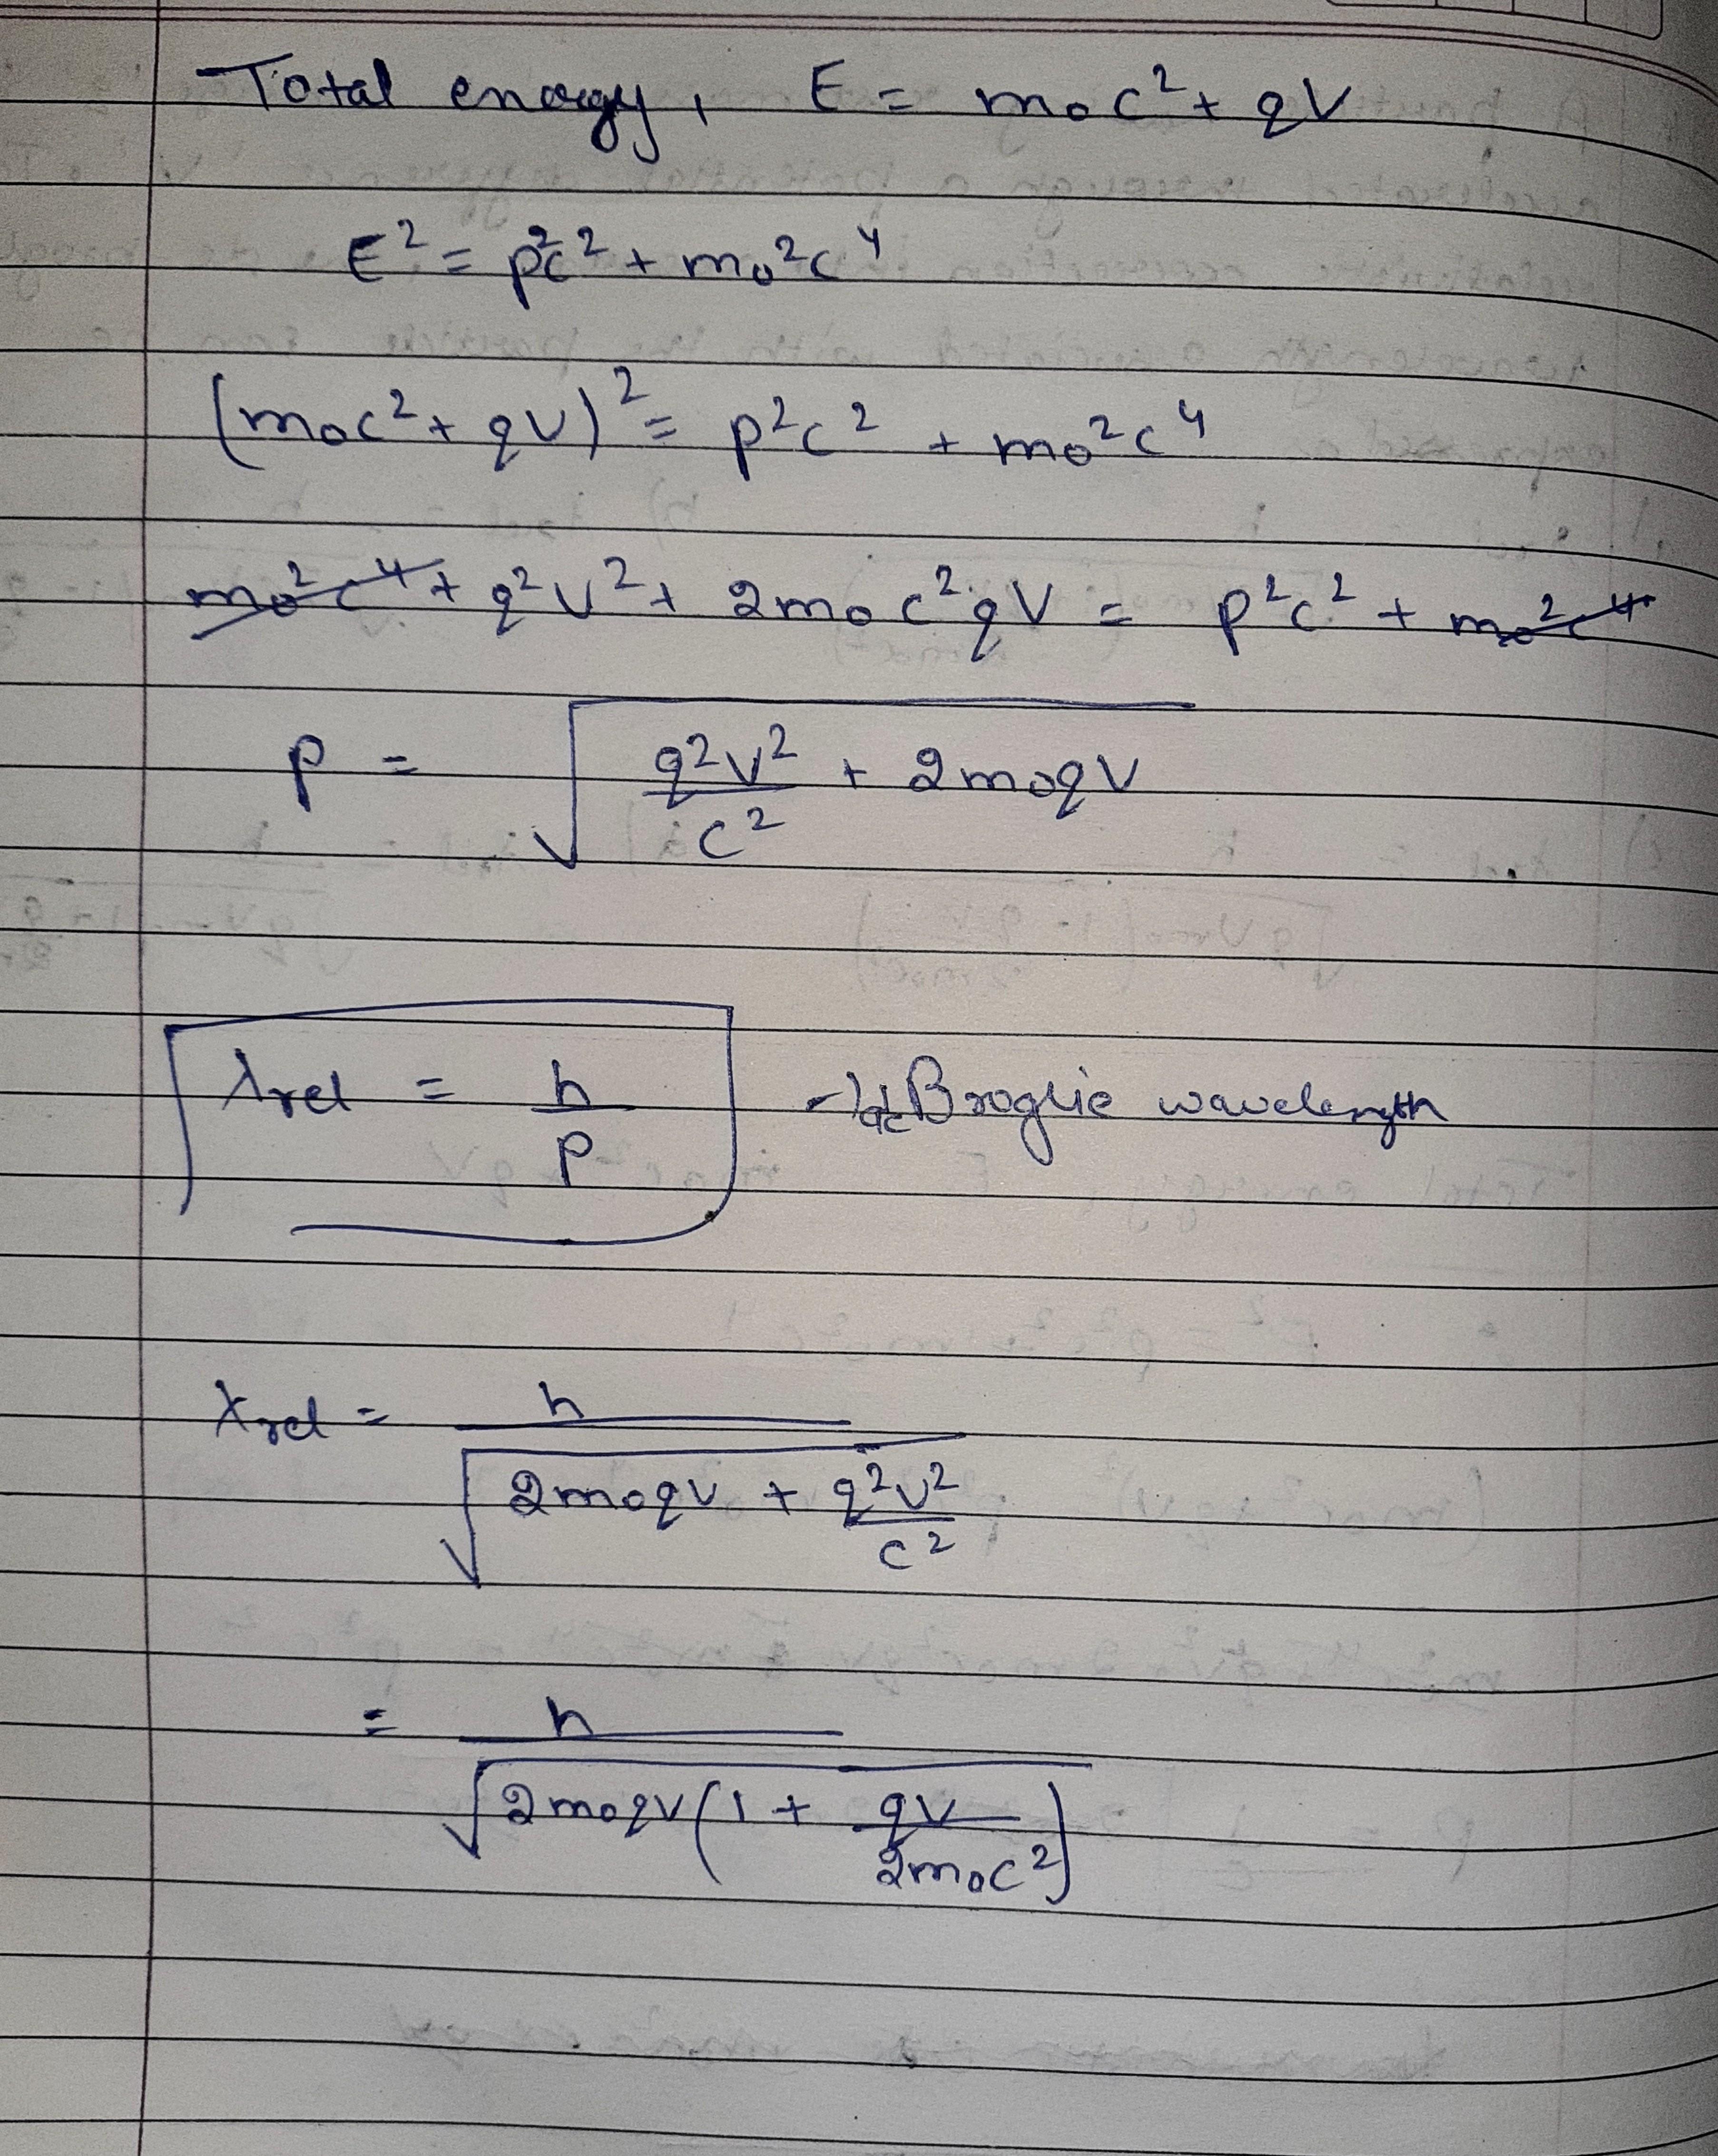 Total energy, E = m₀c² + qV
E² = p²c² + m₀²c⁴
(m₀c² + qV)² = p²c² + m₀²c⁴
m₀²c⁴ + q²V² + 2m₀c²qV = p²c² + m₀²c⁴
p = √(q²V²/c² + 2m₀qV)
λrel = h/p → de Broglie wavelength
λrel = h/√(2m₀qV + q²V²/c²)
= h/√(2m₀qV(1 + qV/2m₀c²))